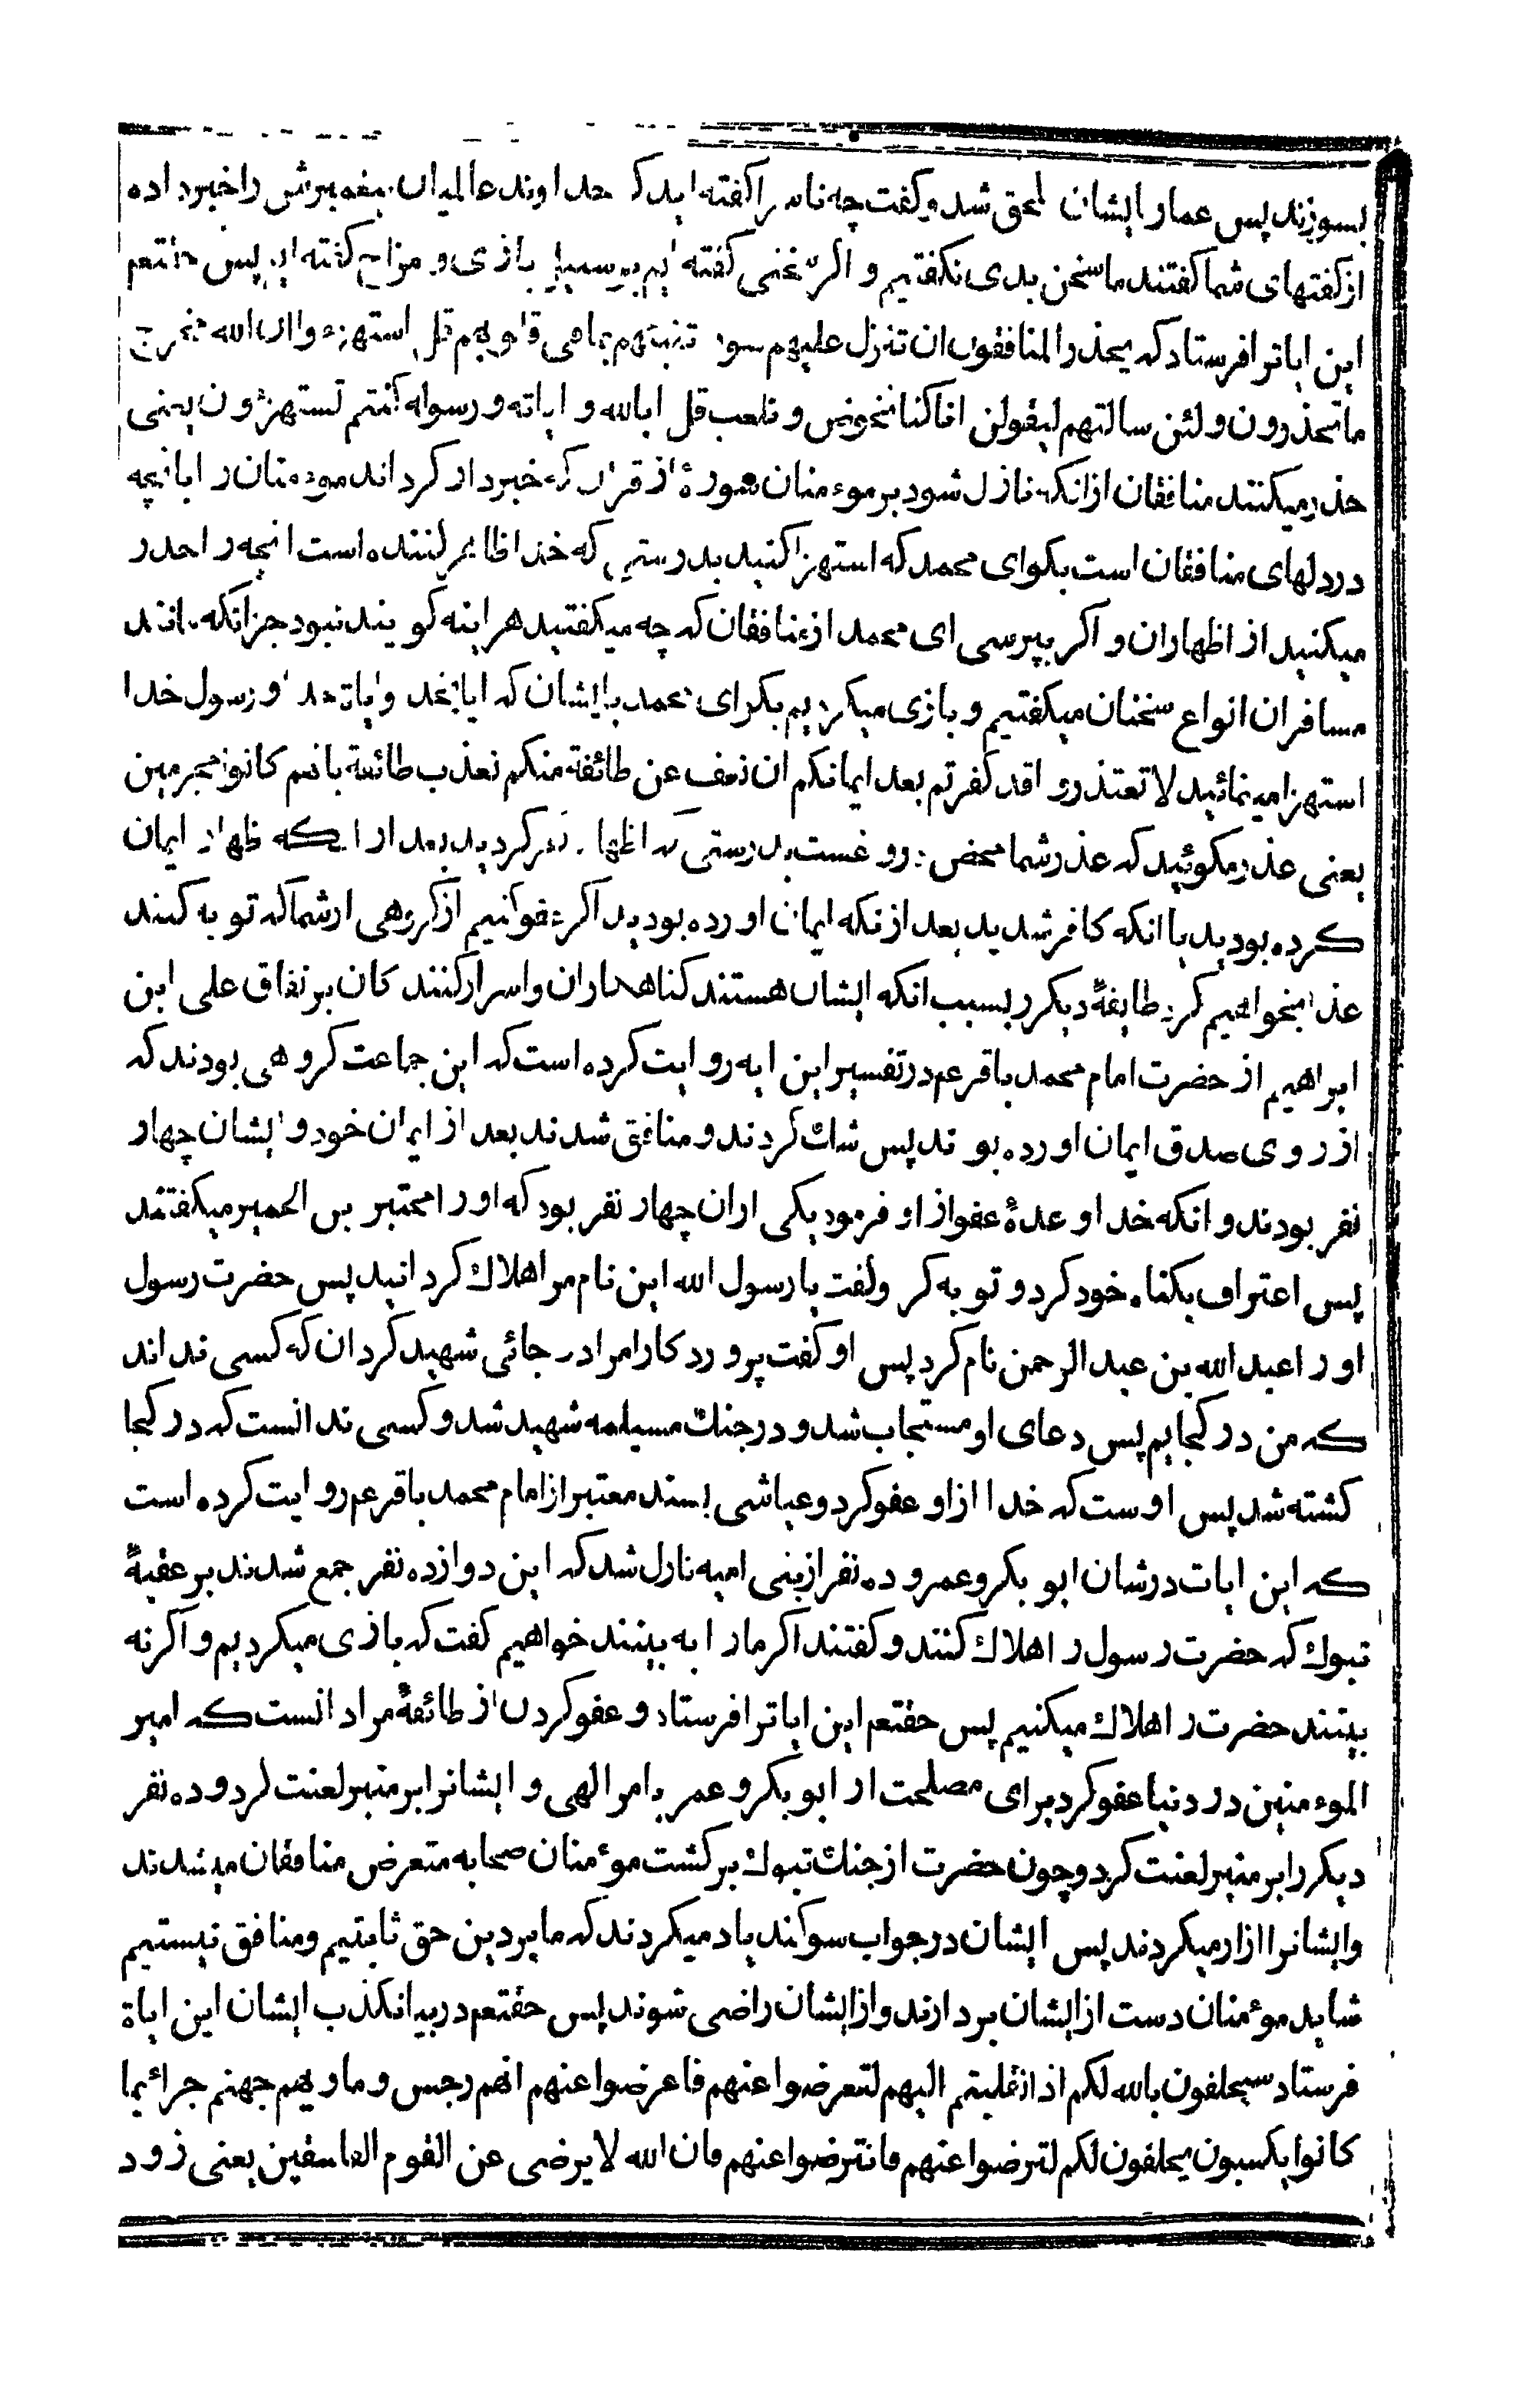 بسوزند پس عمار ایشان ملحق شد و کفت چه ناسزا کفته اید که خداوند عالمیان پیغمبرش را خبر داده
از کفتهای شما کفتند ما سخن بدی نکفتیم و اکر سخنی کفته ایم بر سبیل بازی و مزاح کفته ایم پس حقتعم
این ایاترا فرستاد که یحذر المنافقون ان تنزل علیهم سورة تنبئهم بما فی قلوبهم قل استهزءوا ان الله مخرج
ما تحذرون ولئن سالتهم لیقولن انما کنا نخوض و نلعب قل ابالله و ایاته و رسوله کنتم تستهزؤن یعنی
حذر میکنند منافقان از انکه نازل شود بر موءمنان سورهٔ از قران که خبردار کرداند موءمنان را بانچه
در دلهای منافقان است بکو ای محمد که استهزا کنید بدرستی که خدا ظاهر کننده است انچه را حذر
میکنید از اظهار ان و اکر بپرسی ای محمد از منافقان که چه میکفتید هر اینه کویند نبود جز انکه مانند
مسافران انواع سخنان میکفتیم و بازی میکردیم بکو ای محمد بایشان که ایا بخدا و ایات خدا و رسول خدا
استهزا مینمائید لا تعتذروا قد کفرتم بعد ایمانکم ان نعف عن طائفة منکم نعذب طائفة بانهم کانوا مجرمین
یعنی عذر مکوئید که عذر شما محض دروغست بدرستی که اظهار کفر کردید بعد از انکه اظهار ایمان
کرده بودید یا انکه کافر شدید بعد از نکه ایمان اورده بودید اکر عفو کنیم از کروهی از شما که توبه کنند
عذاب خواهیم کرد طایفهٔ دیکر را بسبب انکه ایشان هستند کناهکاران و اسرار کنند کان بر نفاق علی ابن
ابراهیم از حضرت امام محمد باقر عم در تفسیر این ایه روایت کرده است که این جماعت کروهی بودند که
از روی صدق ایمان اورده بودند پس شك کردند و منافق شدند بعد از ایمان خود و ایشان چهار
نفر بودند و انکه خدا وعدهٔ عفو از او فرمود یکی از ان چهار نفر بود که او را محتبر بن الحمیر میکفتند
پس اعتراف بکناه خود کرد و توبه کرد و کفت یا رسول الله این نام مرا هلاك کردانید پس حضرت رسول
او را عبد الله بن عبد الرحمن نام کرد پس او کفت پرورد کارا مرا در جائی شهید کردان که کسی نداند
که من در کجایم پس دعای او مستجاب شد و در جنك مسیلمه شهید شد و کسی ندانست که در کجا
کشته شد پس اوست که خدا از او عفو کرد و عیاشی بسند معتبر از امام محمد باقر عم روایت کرده است
که این ایات در شان ابو بکر و عمر و ده نفر از بنی امیه نازل شد که این دوازده نفر جمع شدند بر عقبهٔ
تبوك که حضرت رسول را هلاك کنند و کفتند اکر ما را به بینند خواهیم کفت که بازی میکردیم و اکر نه
بینند حضرت را هلاك میکنیم پس حقتعم این ایاترا فرستاد و عفو کردن از طائفهٔ مراد انست که امیر
الموءمنین در دنیا عفو کرد برای مصلحت از ابو بکر و عمر بامر الهی و ایشانرا بر منبر لعنت کرد و ده نفر
دیکر را بر منبر لعنت کرد و چون حضرت از جنك تبوك بر کشت موءمنان صحابه متعرض منافقان میشدند
و ایشانرا ازار میکردند پس ایشان در جواب سوکند یاد میکردند که ما بر دین حق ثابتیم و منافق نیستیم
شاید موءمنان دست از ایشان بر دارند و از ایشان راضی شوند پس حقتعم در بیان کذب ایشان این ایاة
فرستاد سیحلفون بالله لکم اذا انقلبتم الیهم لتعرضوا عنهم فاعرضوا عنهم انهم رجس و ماویهم جهنم جزائبما
کانوا یکسبون یحلفون لکم لترضوا عنهم فان ترضوا عنهم فان الله لا یرضی عن القوم الفاسقین یعنی زود